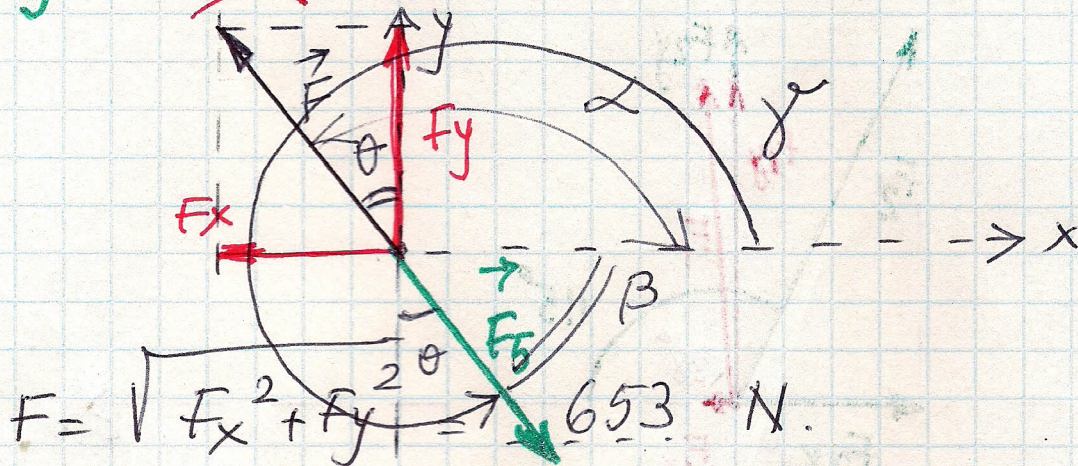 y
F⃗
α
γ
θ
Fy
Fx
x
β
θ
F⃗5
F = √Fx² + Fy² = 653 N.